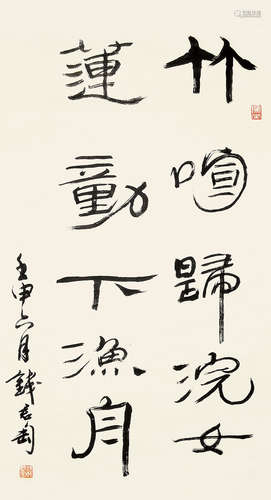 竹喧歸浣女
蓮動下漁舟
壬申六月 錢君匋